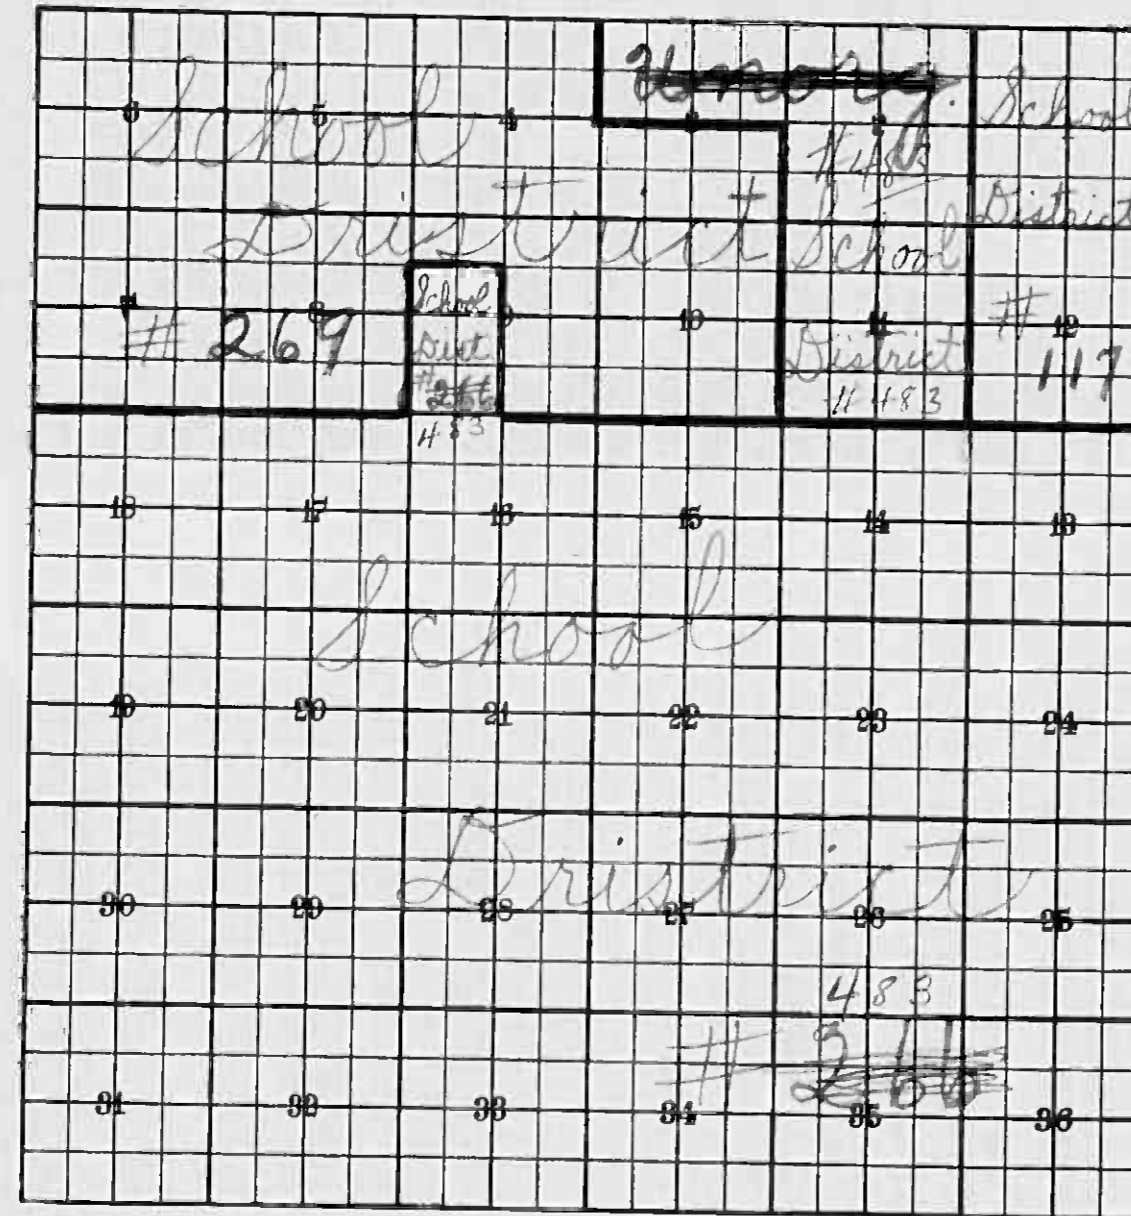 6 5 4 3 2
Unorg.
# 483
School
District
# 269
School
Dist
# 266
483
School
District
# 483
School
District
#
117
7 8 9 10 11 12
18 17 16 15 14 13
School
19 20 21 22 23 24
District
30 29 28 27 26 25
483
# 266
31 32 33 34 35 36